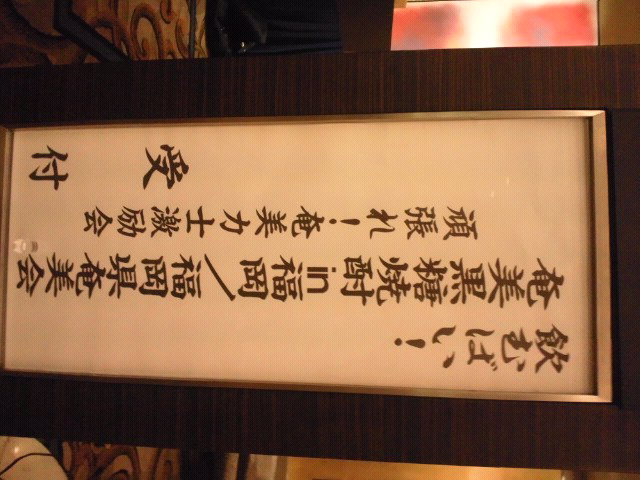 飲むばい、！
奄美黒糖焼酎in福岡／福岡県奄美会
頑張れ！奄美力士激励会
受付